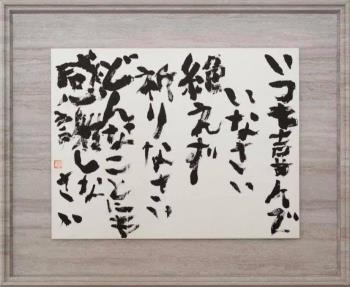 いつも喜んで
いなさい
絶えず
祈りなさい
どんなことにも
感謝しな
さい